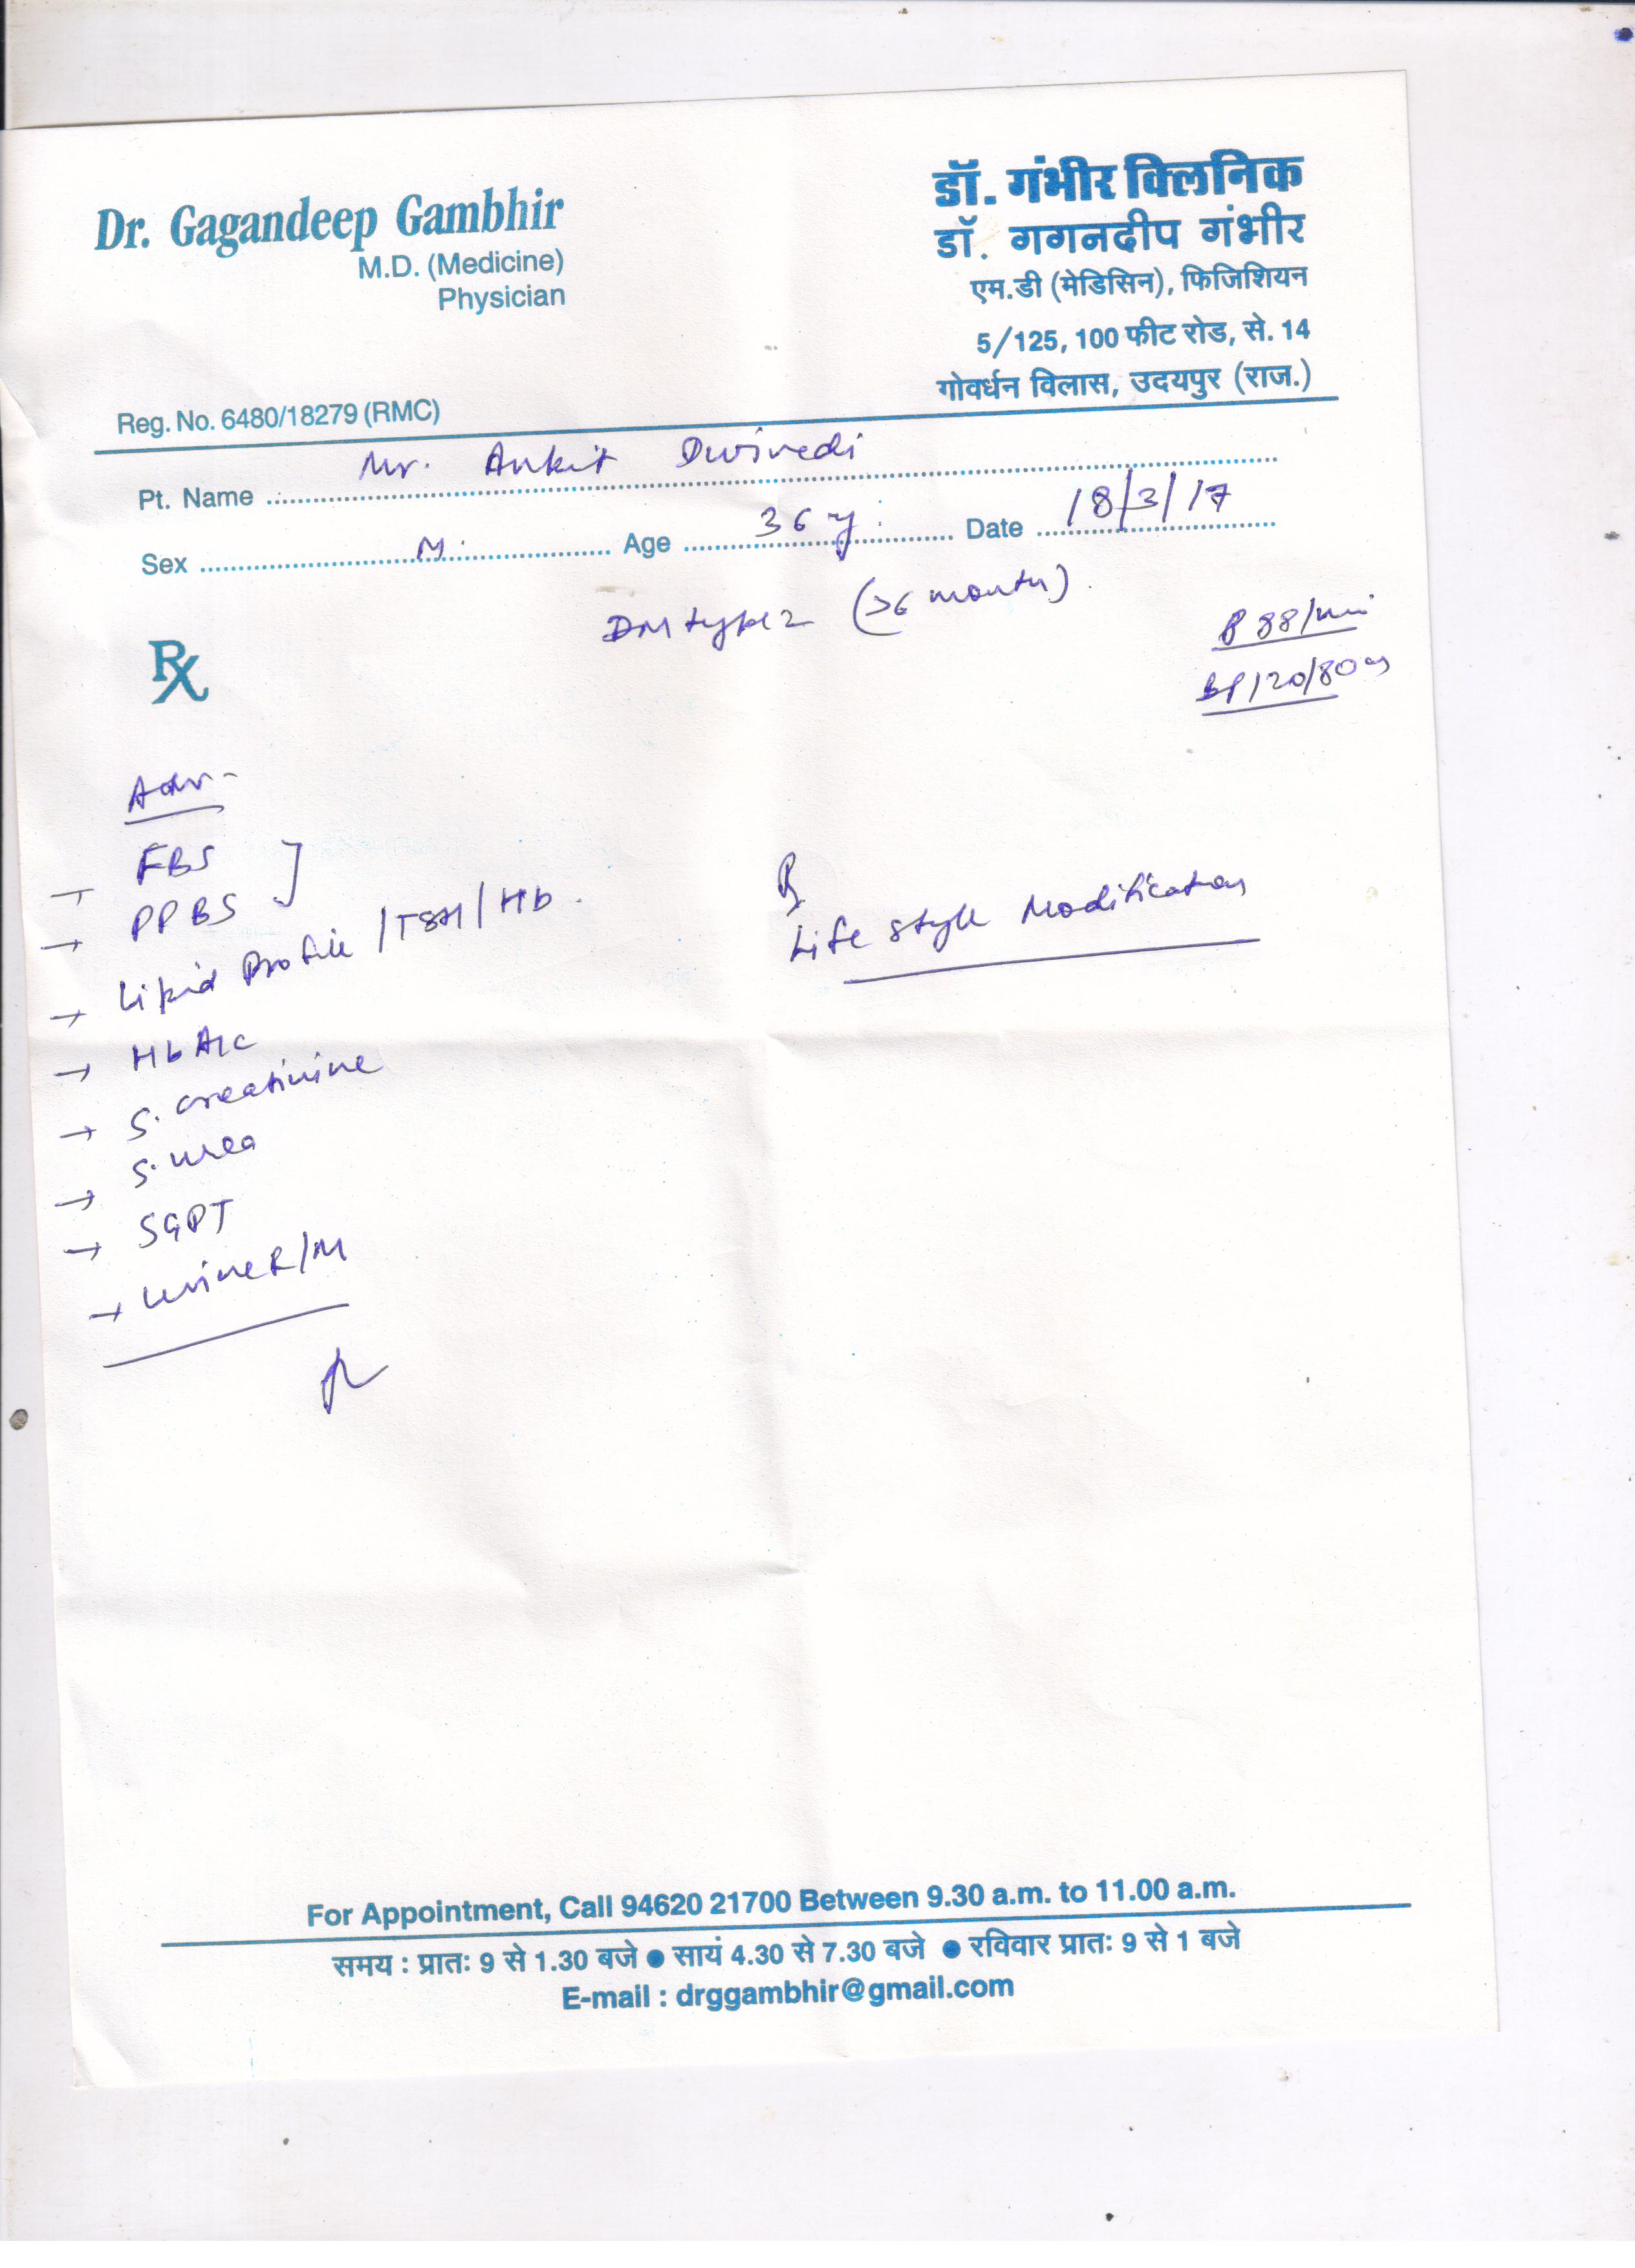 Dr. Gagandeep Gambhir
M.D. (Medicine)
Physician
Reg. No. 6480/18279 (RMC)
डॉ. गंभीर क्लिनिक
डॉ. गगनदीप गंभीर
एम.डी (मेडिसिन), फिजिशियन
5/125, 100 फीट रोड, से. 14
गोवर्धन विलास, उदयपुर (राज.)
Pt. Name Mr. Ankit Dwivedi
Sex M. Age 36 y. Date 18/3/17
DM type 2 (>6 months)
P 88/min
BP 120/80
Rx
Adv-
→ FBS ]
→ PPBS
→ Lipid Profile / TSH / Hb.
→ HbA1c
→ S. creatinine
→ S. urea
→ SGPT
→ urine R/M
Rx
Life style Modification
For Appointment, Call 94620 21700 Between 9.30 a.m. to 11.00 a.m.
समय : प्रातः 9 से 1.30 बजे ● सायं 4.30 से 7.30 बजे ● रविवार प्रातः 9 से 1 बजे
E-mail : drggambhir@gmail.com